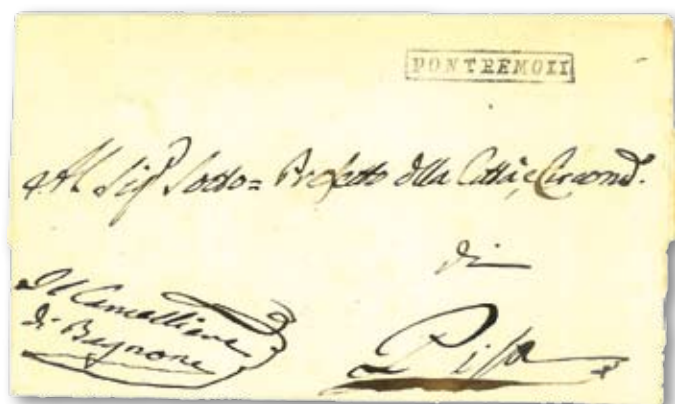 PONTREMOLI
Al Sig.r Sotto = Prefetto della Città, e Circond.o
di
Pisa
Il Cancelliere
di Bagnone